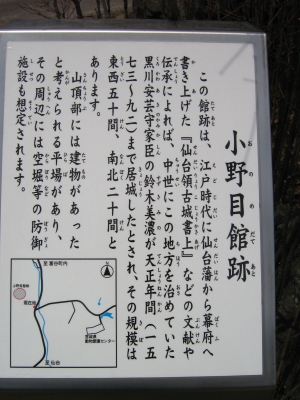 小野目館跡
お の め だて あと
この館跡は、江戸時代に仙台藩から幕府へ
書き上げた『仙台領古城書上』などの文献や
伝承によれば、中世にこの地方を治めていた
黒川安芸守家臣の鈴木美濃が天正年間(一五
七三〜九二)まで居城したとされ、その規模は
東西五十間、南北二十間と
あります。
山頂部には建物があった
と考えられる平場があり、
その周辺には空堀等の防御
施設も想定されます。
至富谷町内
小野目館跡
現在地
宮城県
動物愛護センター
至仙台